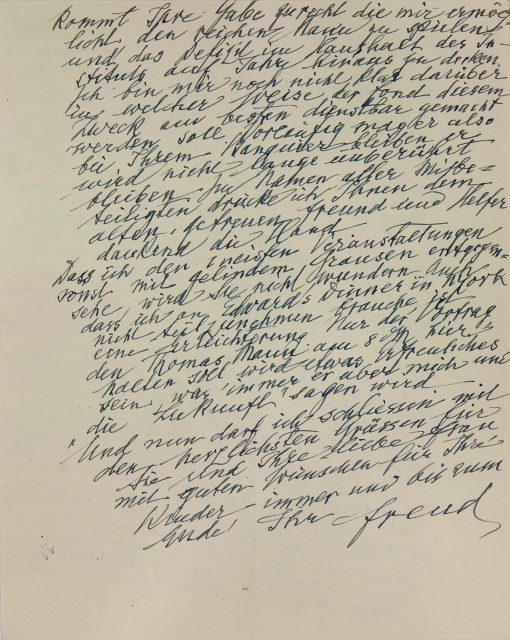 kommt Ihre Gabe zurecht die mir ermög-
licht den reichen Mann zu spielen
und das Defizit im Haushalt des In-
stituts auf Jahre hinaus zu decken.
Ich bin mir noch nicht klar darüber
in welcher Weise der Fond diesem
Zweck am besten dienstbar gemacht
werden soll. Vorläufig mag er also
bei Ihrem Banquier bleiben er
wird nicht lange unberührt
bleiben. Im Namen aller Mitbe-
teiligten drücke ich Ihnen dem
alten, getreuen Freund und Helfer
dankend die Hand
Dass ich den meisten Veranstaltungen
sonst mit gelindem Grausen entgegen-
sehe wird Sie nicht wundern. Auch
dass ich an Edwards Dinner in
nicht teilzunehmen brauche ist
eine Erleichterung. Nur der Vortrag
den Thomas Mann am 8 hier
halten soll wird etwas erfreuliches
sein, was immer er über mich und
die "Zukunft" sagen wird
Und nun darf ich schliessen mit
den herzlichsten Grüssen für
Sie und Ihre liebe Frau
mit guten Wünschen für Ihre
Kinder immer und bis zum
Ende! Ihr Freud